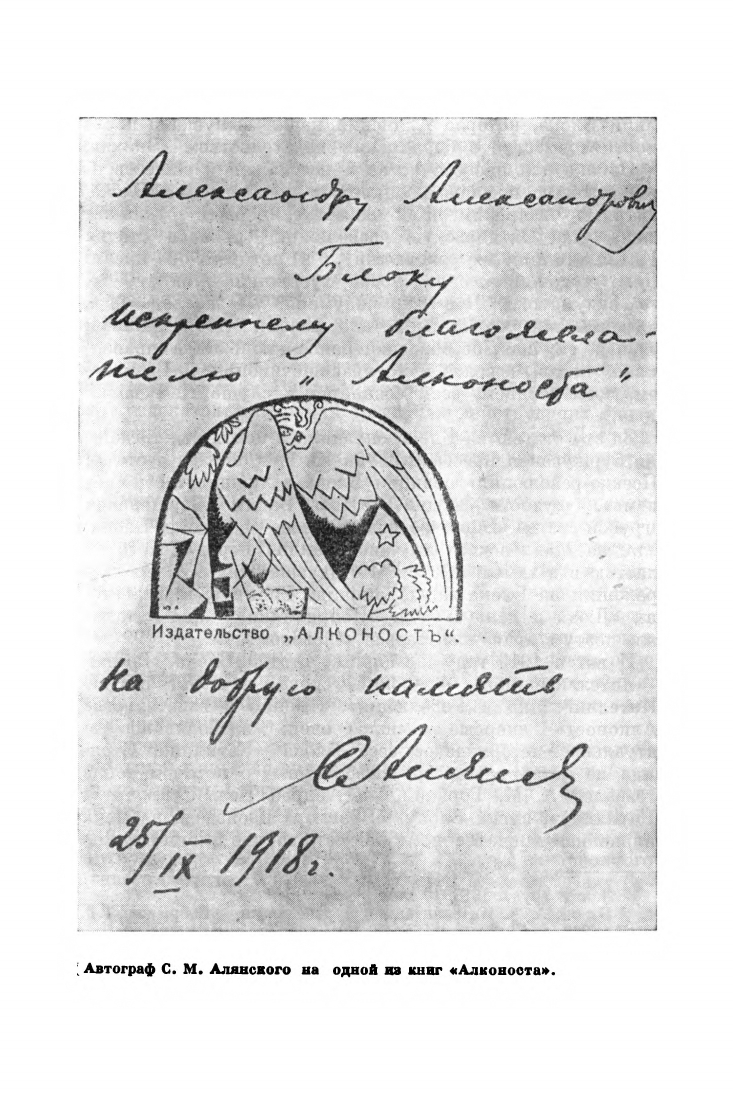 Александру Александровичу
Блоку
искреннему благожела-
телю „Алконоста"
Издательство „АЛКОНОСТЪ".
на добрую память
САлянский
25/IX 1918 г.
Автограф С. М. Алянского на одной из книг «Алконоста».